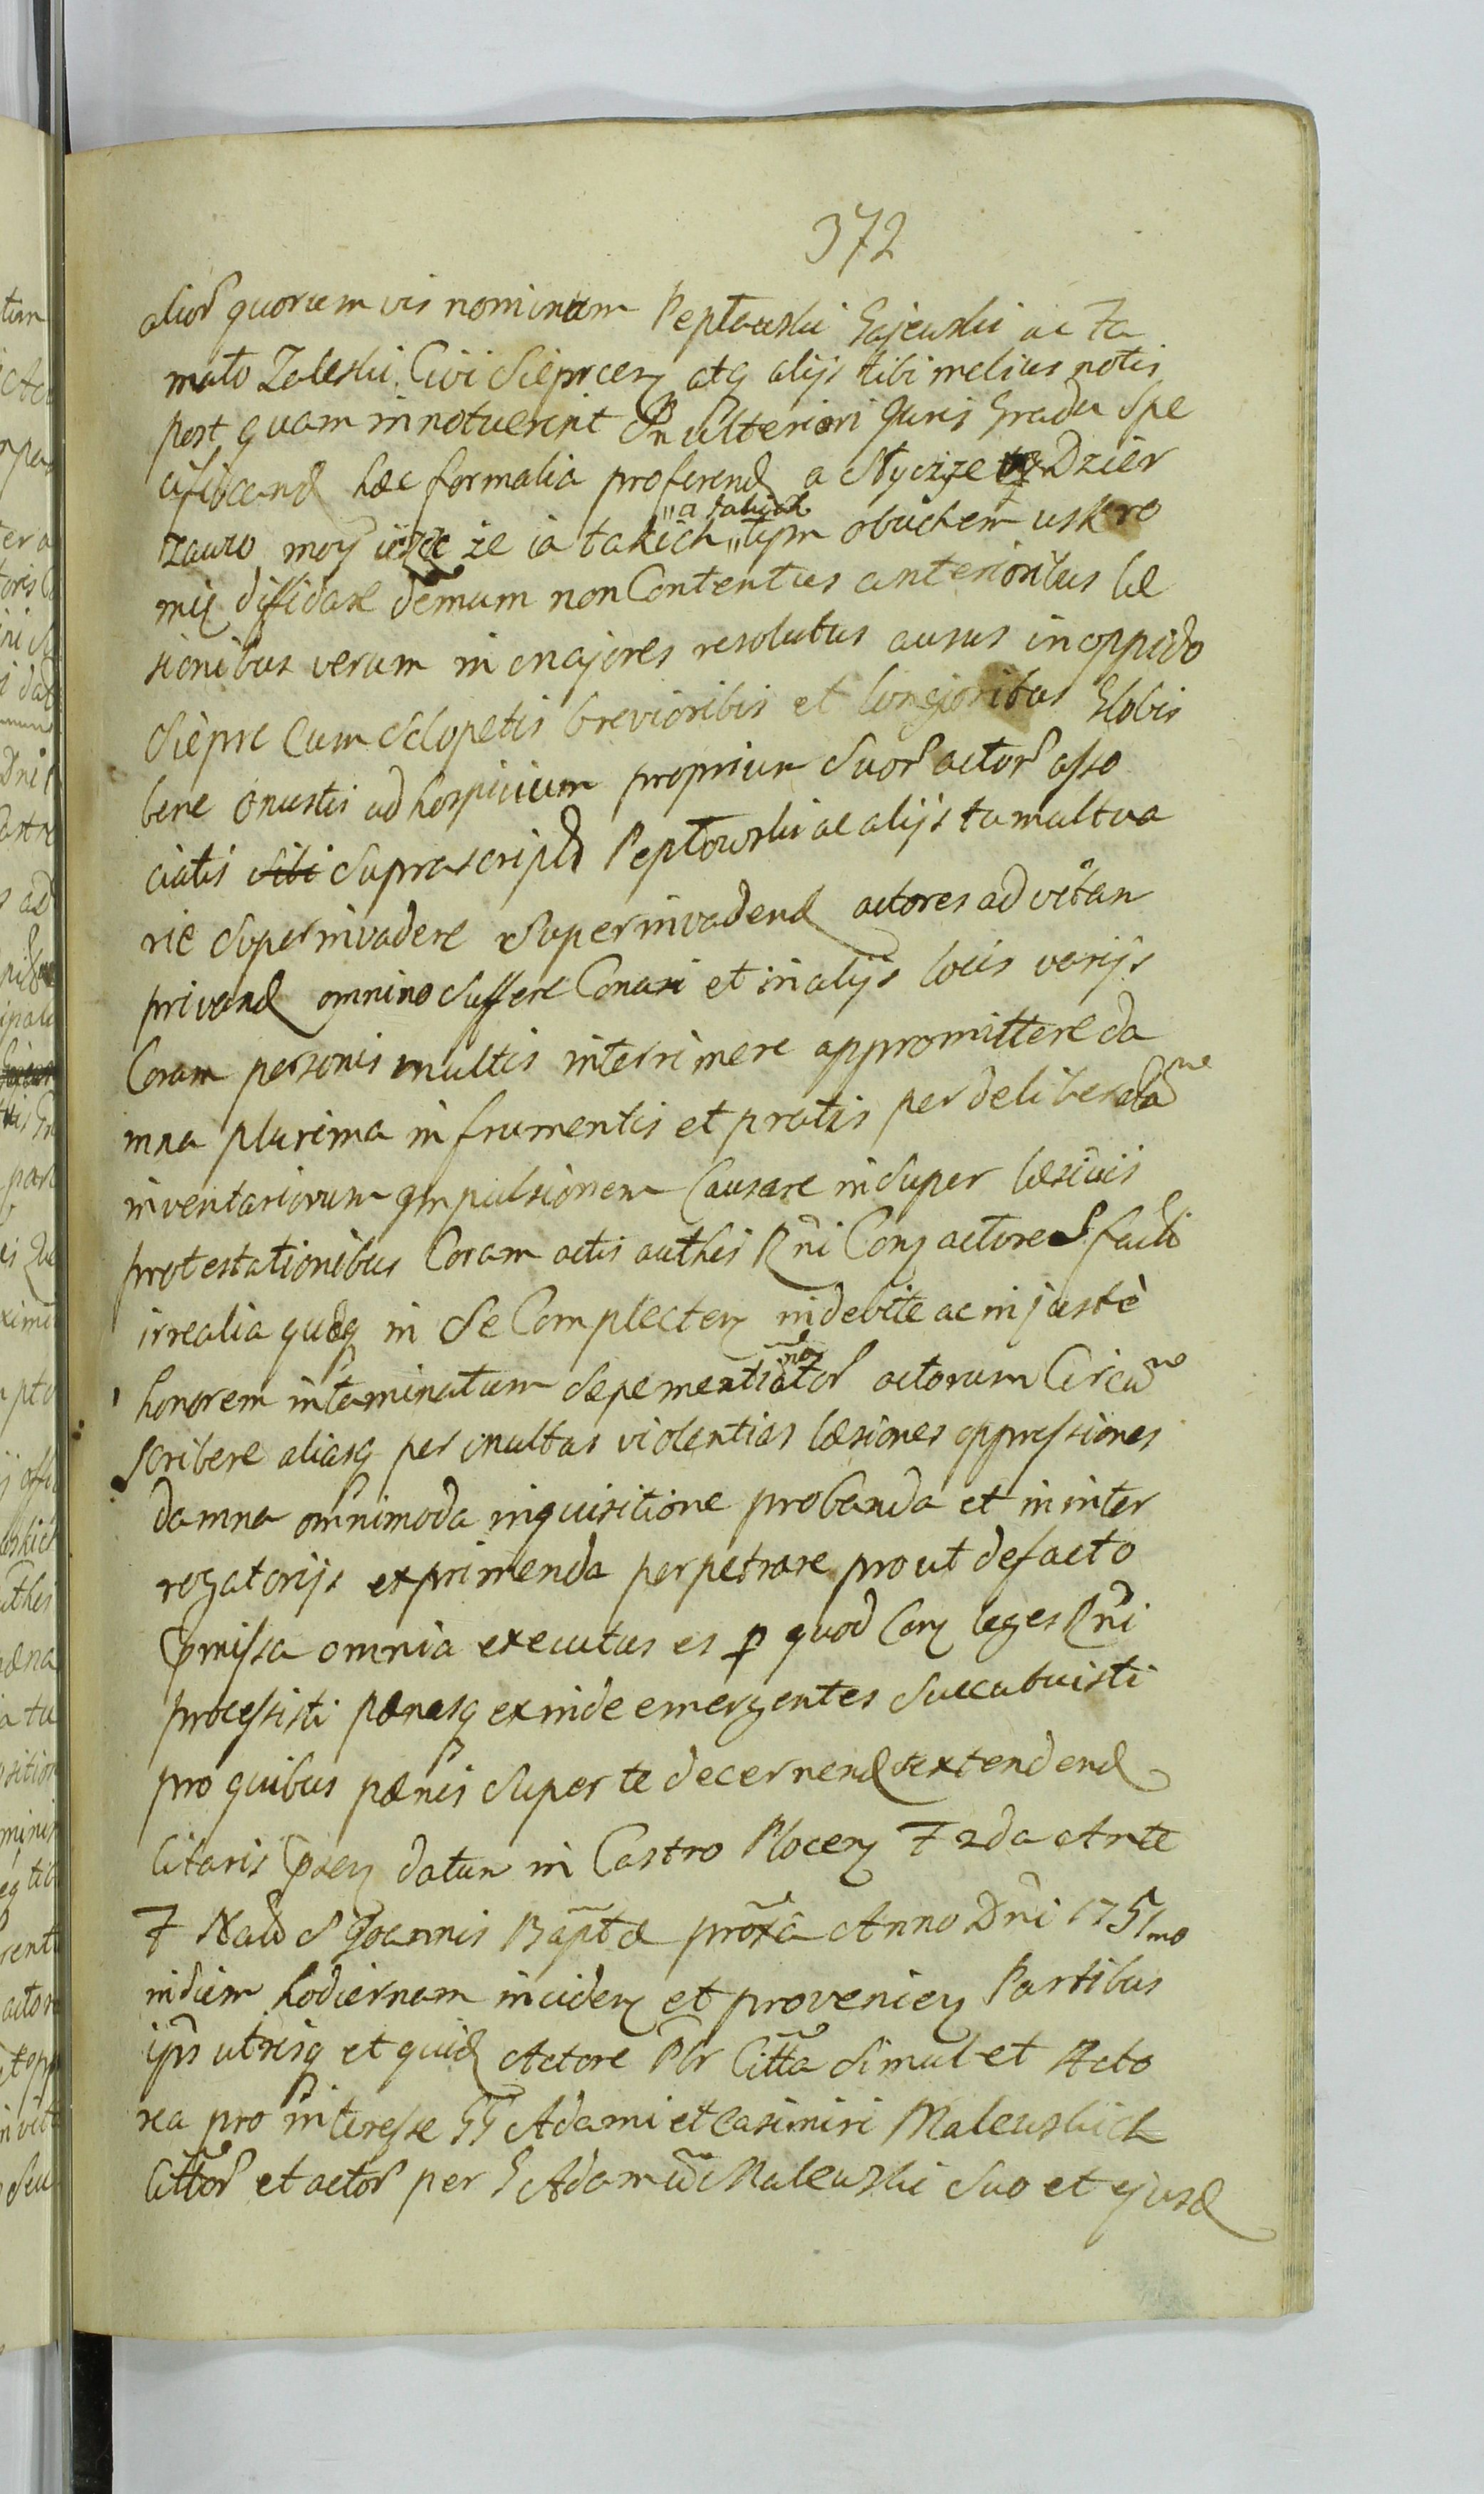 372
alior quorumvis nominum Peptowski Gajewski ac Ta
mato Zaleski Civi Sieprcen atq alijs tibi melius notis
post quam innotuerint In ulteriori Juris Gradu Spe
cificand hæc formalia proferend a Stycizże Dzier
zawro moy że ia takich „a takich „tym obuchem uskro
mię diffidare demum non Contentus anterioribus læ
sionibus verum in majores resolutus ausus in oppido
Sieprc Cum Sclopetis brevioribis et longioribus Globis
bene onustis ad hospicium proprium Suor actor asso
ciatis sibi Suprascript Peptowski ac alijs tumultua
rie Superinvadere Superinvadend actores ad vitan
privand omnino Suffere Conari et in alijs locis varijs
Coram personis multis interimere appromittere da
mna plurima in frumentis et pratis per deliberata ne
inventariorum impulsionem Causare insuper læsivis
protestationibus Coram actis authis Rni Conz actores facti
irrealia quæq in Se Complecten indebite ac injuste
honorem intaminatum Sæpe mentionator actorum Circu
scribere aliasq per multas violentias læsiones oppressiones
damna omnimoda inquisitione probanda et in inter
rogatorijs exprimenda perpetrare prout de facto
Præmissa omnia executus es p quod Con leges Rni
processisti pænasq exinde emergentes Succubuisti
pro quibus pænis Super te decernend extendend
Citaris Præn datum in Castro Plocen F 2da Ante
F Nativ S Joannis Baptæ proxa Anno Dni 1751mo
in diem hodiernam inciden et provenien Partibus
ipis utrisq et quid Actore Plr Citta Simul et Acto
rea pro interesse GG Adami et Casimiri Malewskich
Cittor et actor per G Adamu Malewski Suo et ejusd